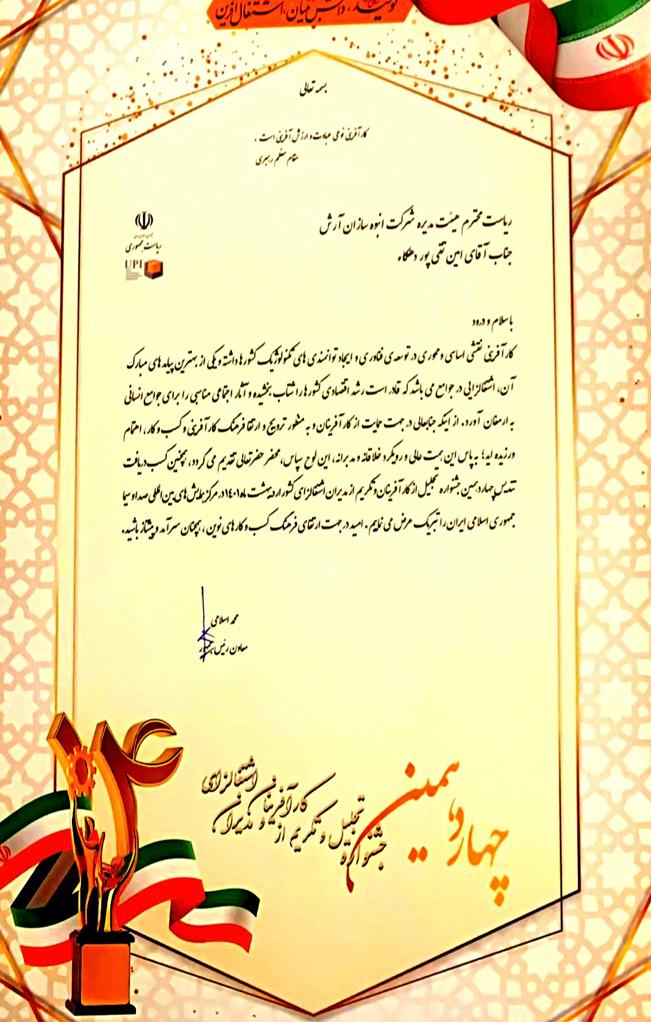 تولید، دانش بنیان، اشتغال آفرین
بسمه تعالی
کارآفرینی نوعی عبادت و ارزش آفرینی است .
مقام معظم رهبری
ریاست جمهوری
UPI
ریاست محترم هیئت مدیره شرکت انبوه سازان آرش
جناب آقای امین تقی پور دهکاء
با سلام و درود
کارآفرینی نقشی اساسی و محوری در توسعه‌ی فناوری و ایجاد توانمندی های تکنولوژیک کشورها داشته و یکی از بهترین پیامدهای مبارک
آن، اشتغالزایی در جوامع می باشد که قادر است رشد اقتصادی کشورها را شتاب بخشیده و آثار اجتماعی مناسبی را برای جوامع انسانی
به ارمغان آورد. از اینکه جنابعالی در جهت حمایت از کارآفرینان و به منظور ترویج و ارتقا فرهنگ کارآفرینی و کسب و کار، اهتمام
ورزیده اید؛ به پاس این همت عالی و رویکرد خلاقانه و مدبرانه، این لوح سپاس، محضر حضرتعالی تقدیم می گردد، همچنین کسب دریافت
تندیس چهاردهمین جشنواره تجلیل از کارآفرینان و تکریم از مدیران اشتغالزای کشور اردیبهشت ۱۴۰۱، در مرکز همایش های بین المللی صدا و سیما
جمهوری اسلامی ایران را تبریک عرض می نمایم. امید در جهت ارتقای فرهنگ کسب و کارهای نوین، همچنان سرآمد و پیشتاز باشید.
محمد اسلامی
معاون رئیس جمهور
۱۴
چهاردهمین
جشنواره
تجلیل و تکریم از
کارآفرینان و مدیران
اشتغالزای